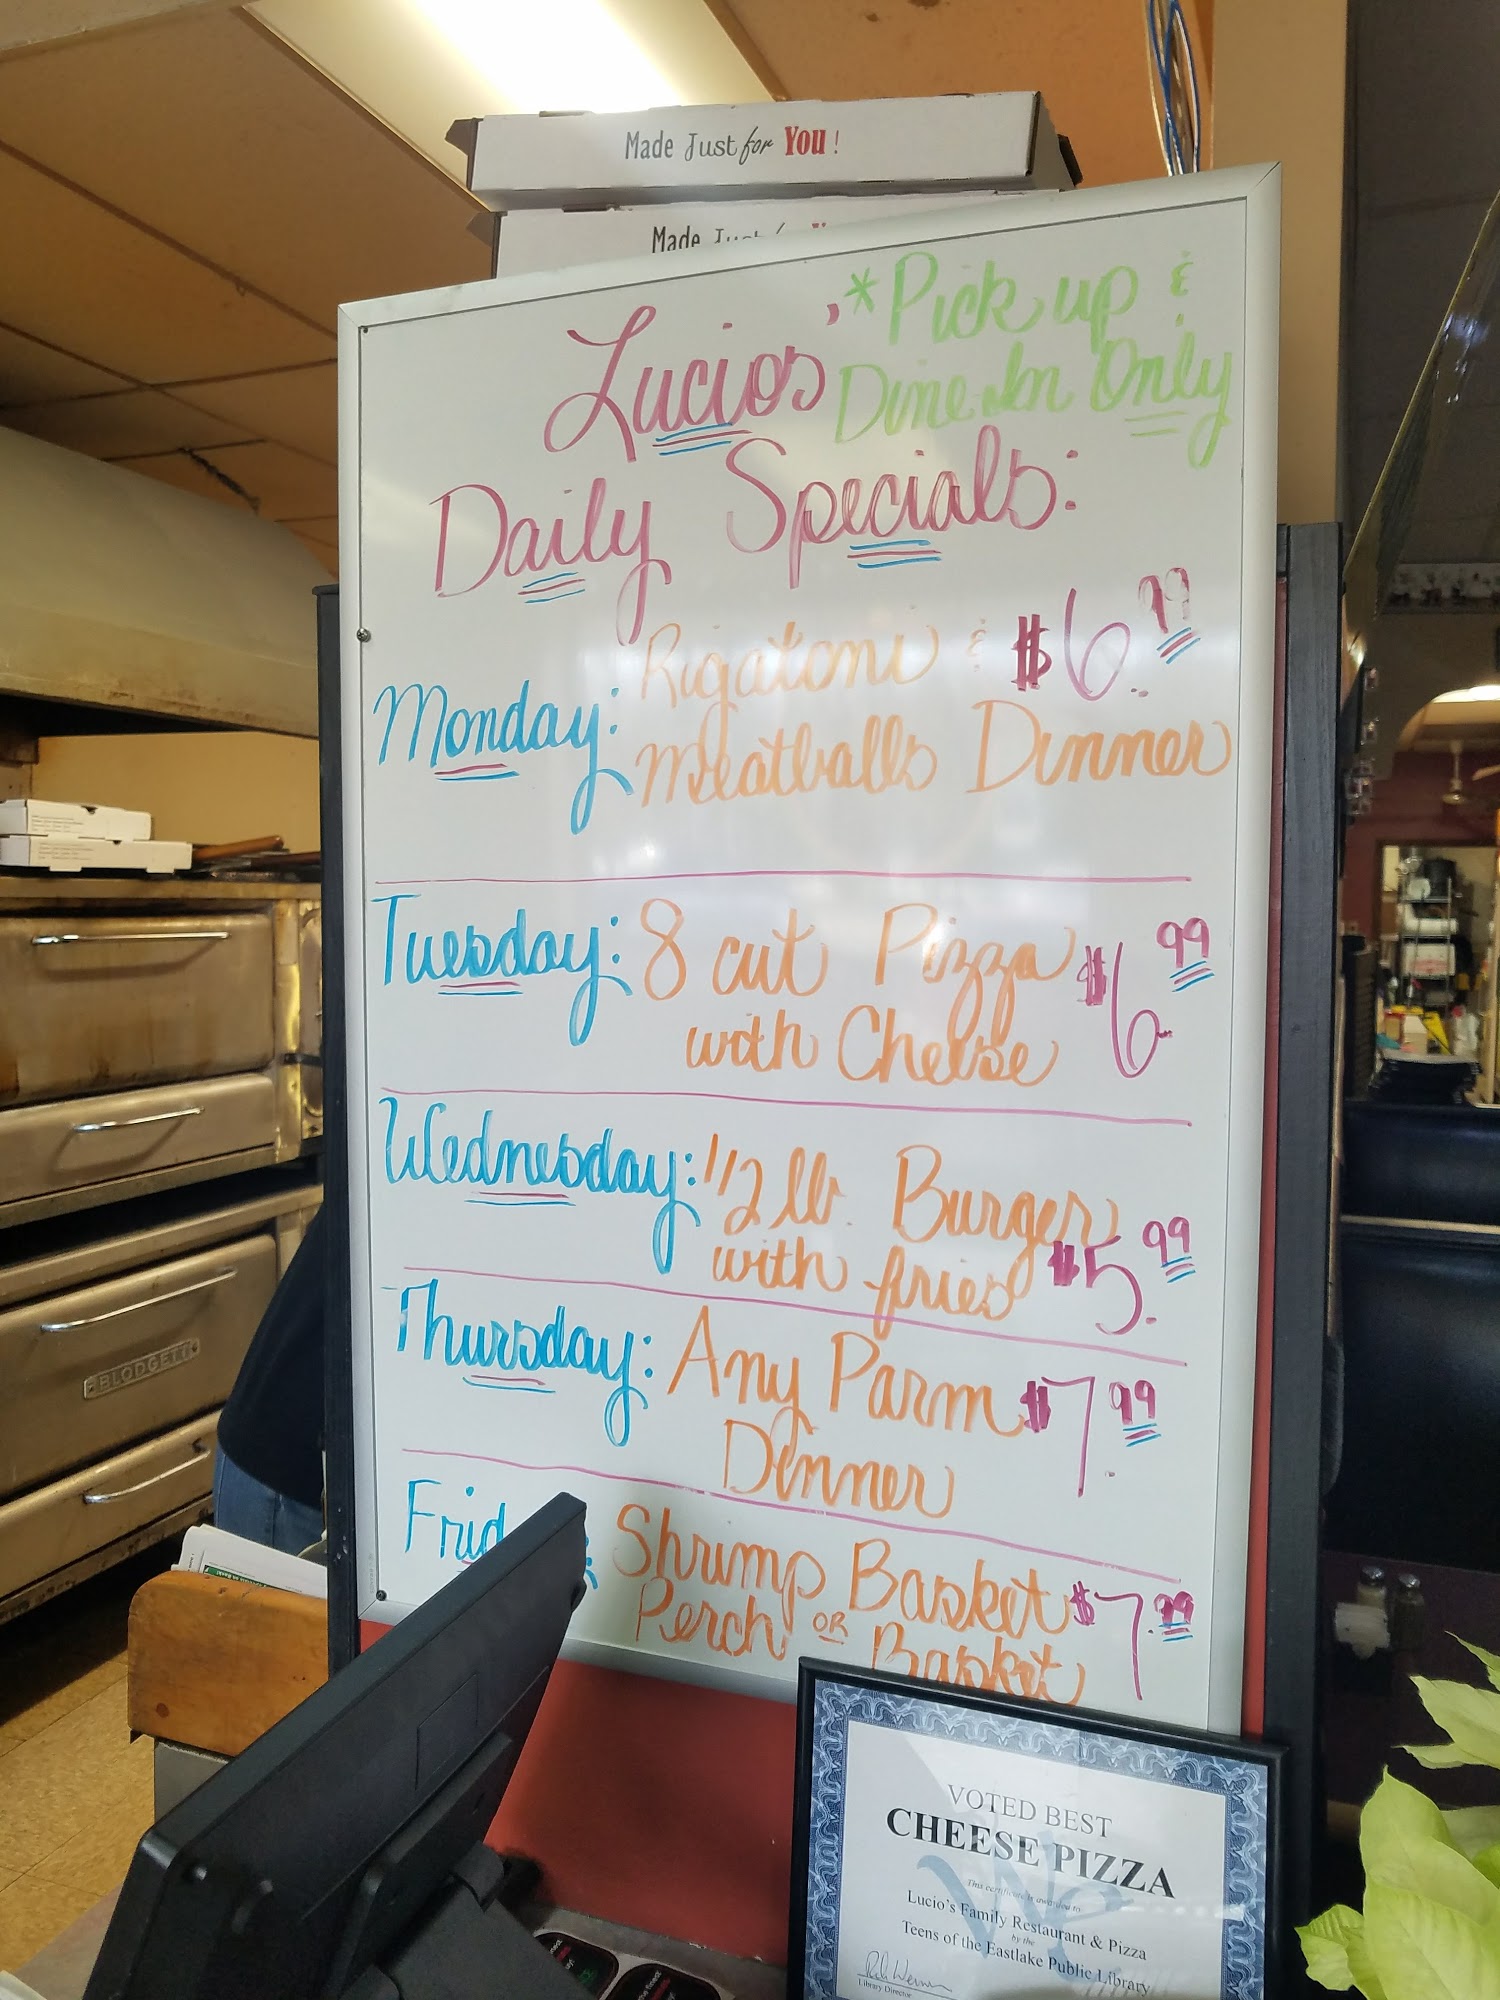 Made Just for You!
Made Just
Lucios'
*Pick up &
Dine In Only
Daily Specials:
Monday: Rigatoni & $6.99
Meatballs Dinner
Tuesday: 8 cut Pizza $6.99
with Cheese
Wednesday: 1/2 lb. Burger
with fries $5.99
Thursday: Any Parm $7.99
Dinner
Frid
Shrimp Basket $7.99
Perch OR Basket
BLODGETT
VOTED BEST
CHEESE PIZZA
This certificate is awarded to
Lucio's Family Restaurant & Pizza
by the
Teens of the Eastlake Public Library
Library Director